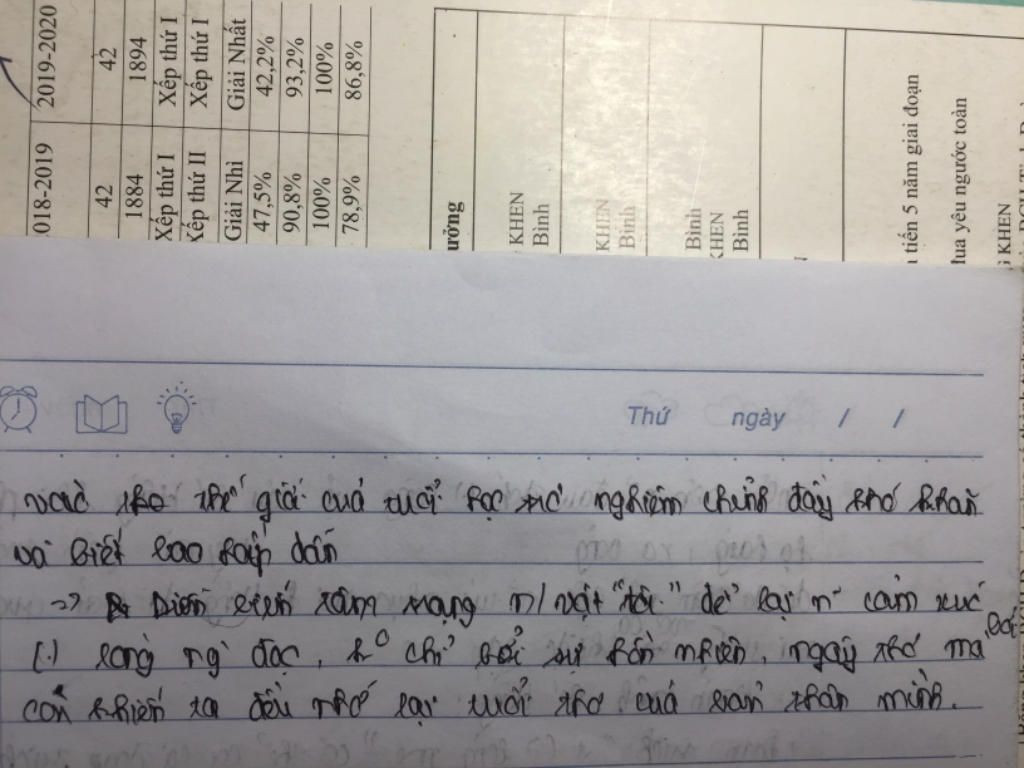 2019-2020
42
1894
Xếp thứ I
Xếp thứ I
Giải Nhất
42,2%
93,2%
100%
86,8%
018-2019
42
1884
Xếp thứ I
Xếp thứ II
Giải Nhì
47,5%
90,8%
100%
78,9%
ưởng
KHEN
Bình
KHEN
Bình
Bình
KHEN
Bình
tiến 5 năm giai đoạn
đua yêu nước toàn
KHEN
Thứ ngày / /
thế giới của tuổi học trò nghiêm chỉnh đầy khó khăn
và biết bao hấp dẫn
=> Diễn biến tâm trạng n/vật "tôi" để lại n~ cảm xúc
(.) lòng ng` đọc, k° chỉ bởi sự hồn nhiên, ngây thơ mà bởi
còn khiến ta đều nhớ lại tuổi thơ của bản thân mình.